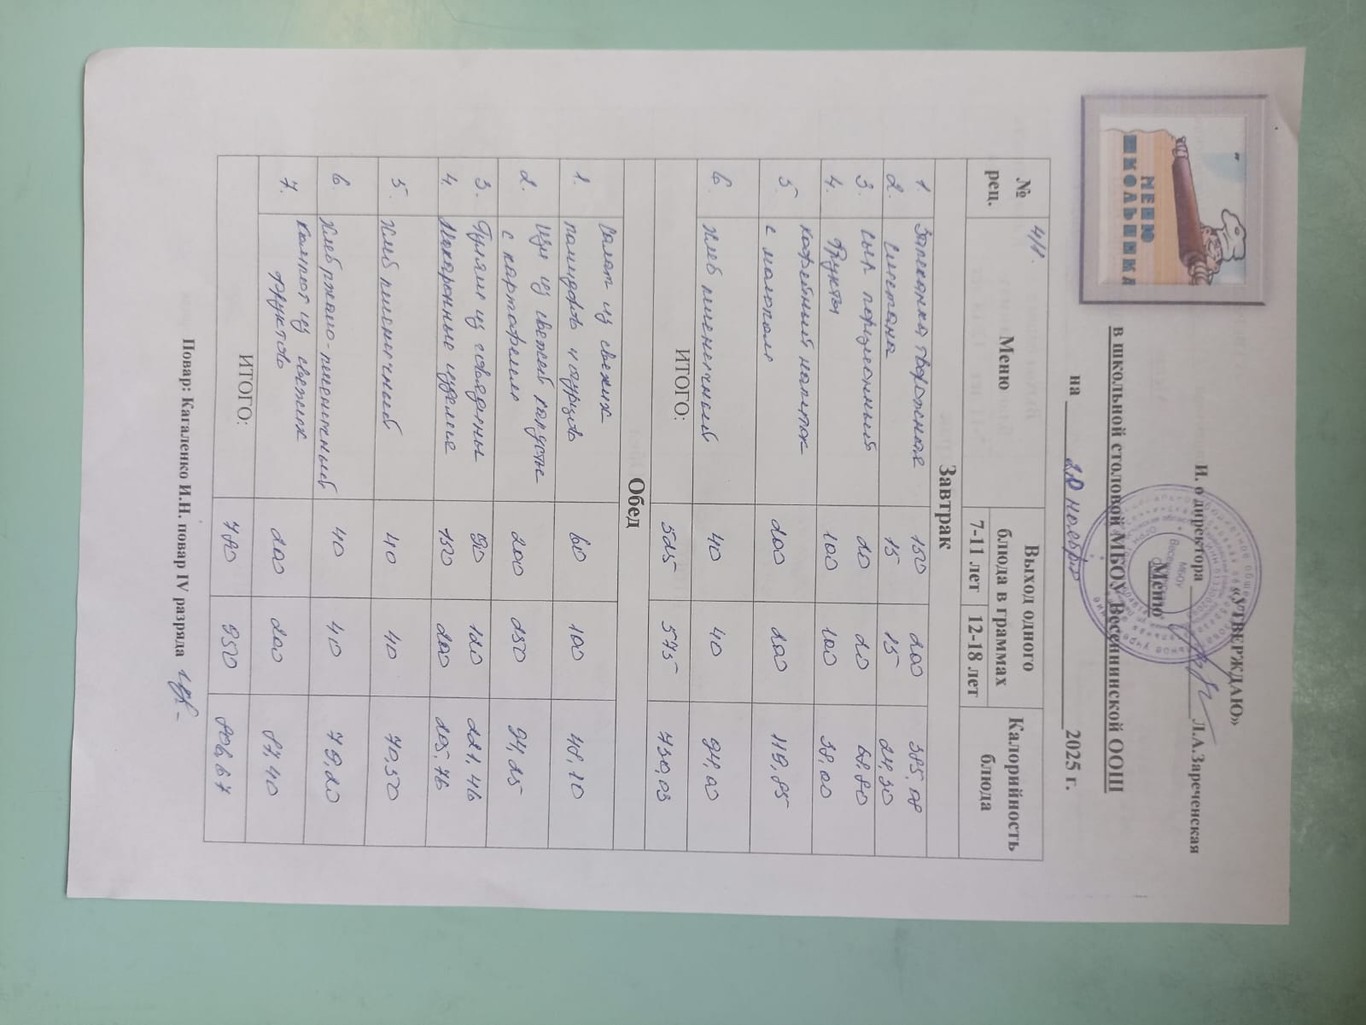 МЕНЮ
ШКОЛЬНИКА
«УТВЕРЖДАЮ»
И. о директора Л.А.Зареченская
Меню
в школьной столовой МБОУ Весеннинской ООШ
на 20 ноября 2025 г.
№ рец. Меню Выход одного блюда в граммах Калорийность блюда
7-11 лет 12-18 лет
Завтрак
1. Запеканка творожная 150 200 385,08
2. Сметана 15 15 24,30
3. Сыр порционный 20 20 68,80
4. Фрукты 100 100 38,00
5. Кофейный напиток
с молоком 200 200 119,85
6. Хлеб пшеничный 40 40 94,00
ИТОГО: 525 575 730,03
Обед
1. Салат из свежих
помидоров и огурцов 60 100 48,10
2. Щи из свежей капусты
с картофелем 200 250 94,25
3. Гуляш из говядины 90 120 221,46
4. Макаронные изделия 150 200 205,76
5. Хлеб пшеничный 40 40 70,50
6. Хлеб ржано-пшеничный 40 40 79,20
7. Компот из свежих
фруктов 200 200 87,40
ИТОГО: 780 950 806,67
Повар: Кагаленко И.Н. повар IV разряда